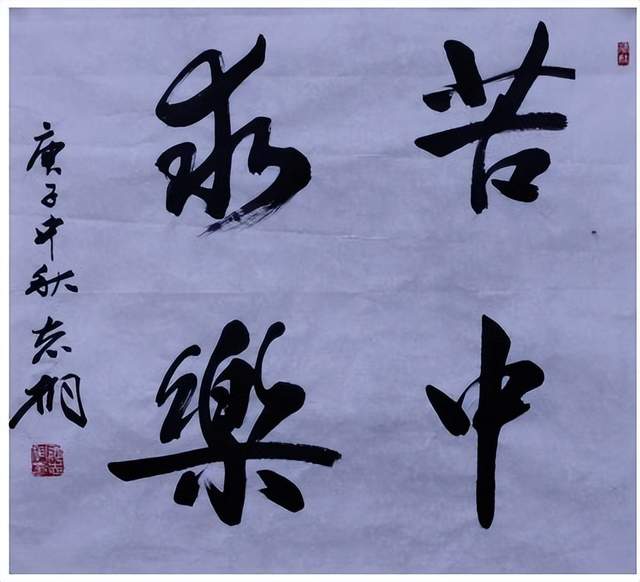 苦中
求樂
庚子中秋志